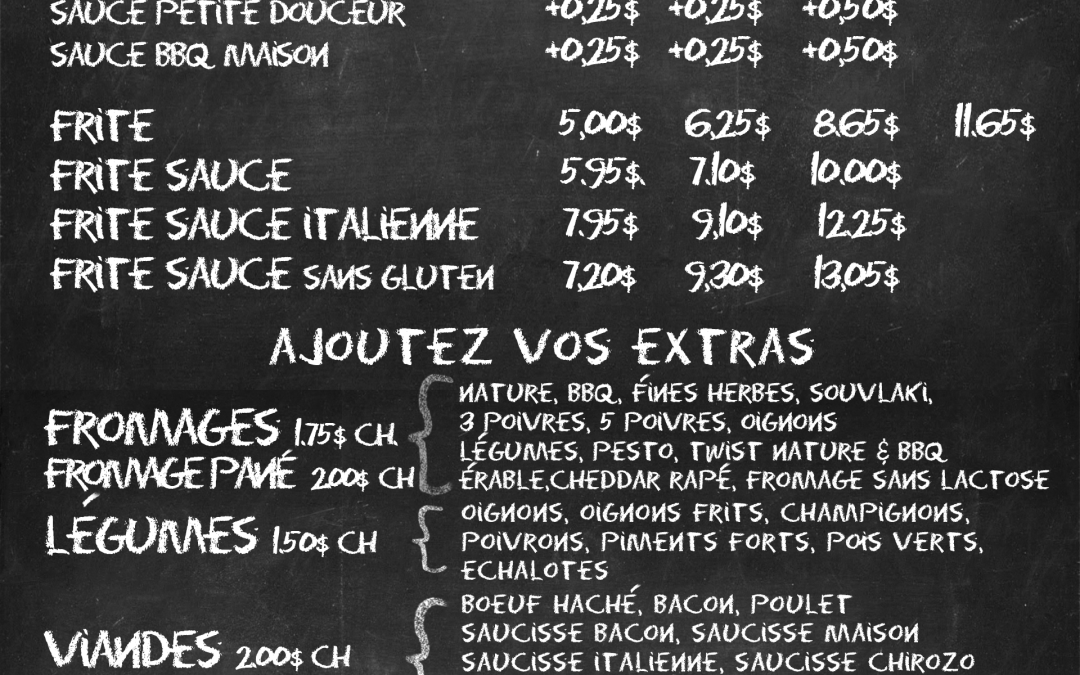 SAUCE PETITE DOUCEUR +0,25$ +0,25$ +0,50$
SAUCE BBQ MAISON +0,25$ +0,25$ +0,50$
FRITE 5,00$ 6,25$ 8.65$ 11.65$
FRITE SAUCE 5.95$ 7.10$ 10.00$
FRITE SAUCE ITALIENNE 7.95$ 9,10$ 12.25$
FRITE SAUCE SANS GLUTEN 7,20$ 9,30$ 13,05$
AJOUTEZ VOS EXTRAS
FROMAGES 1.75$ CH.
FROMAGE PANÉ 2.00$ CH
NATURE, BBQ, FINES HERBES, SOUVLAKI,
3 POIVRES, 5 POIVRES, OIGNONS
LÉGUMES, PESTO, TWIST NATURE & BBQ
ÉRABLE,CHEDDAR RAPÉ, FROMAGE SANS LACTOSE
LÉGUMES 1.50$ CH
OIGNONS, OIGNONS FRITS, CHAMPIGNONS,
POIVRONS, PIMENTS FORTS, POIS VERTS,
ECHALOTES
VIANDES 2.00$ CH
BOEUF HACHÉ, BACON, POULET
SAUCISSE BACON, SAUCISSE MAISON
SAUCISSE ITALIENNE, SAUCISSE CHIROZO